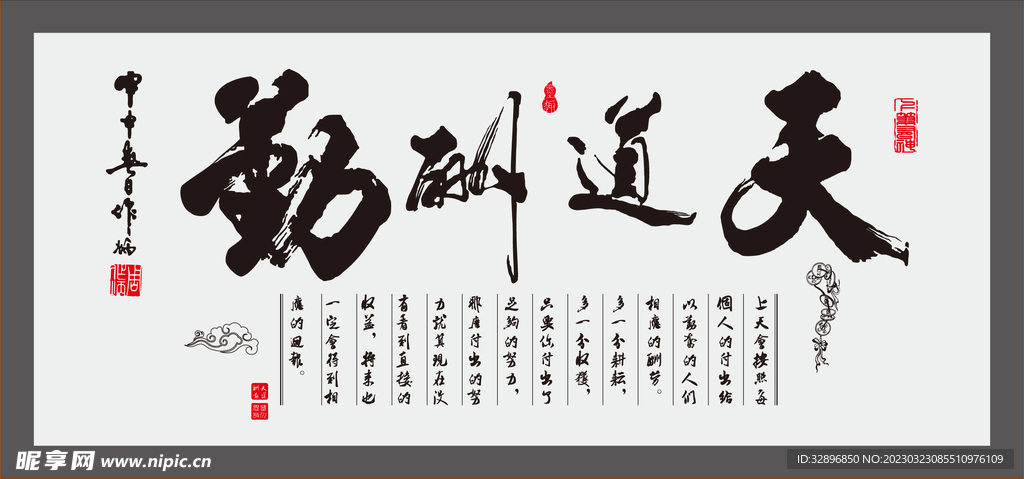 天道酬勤
上天會按照每
個人的付出給
以勤奮的人们
相應的酬劳。
多一分耕耘，
多一分收獲，
只要你付出了
足夠的努力，
那麽付出的努
力就算現在没
有看到直接的
收益，将来也
一定會得到相
應的回報。
甲申春日作炳
昵享网 www.nipic.cn
ID:32896850 NO:20230323085510976109